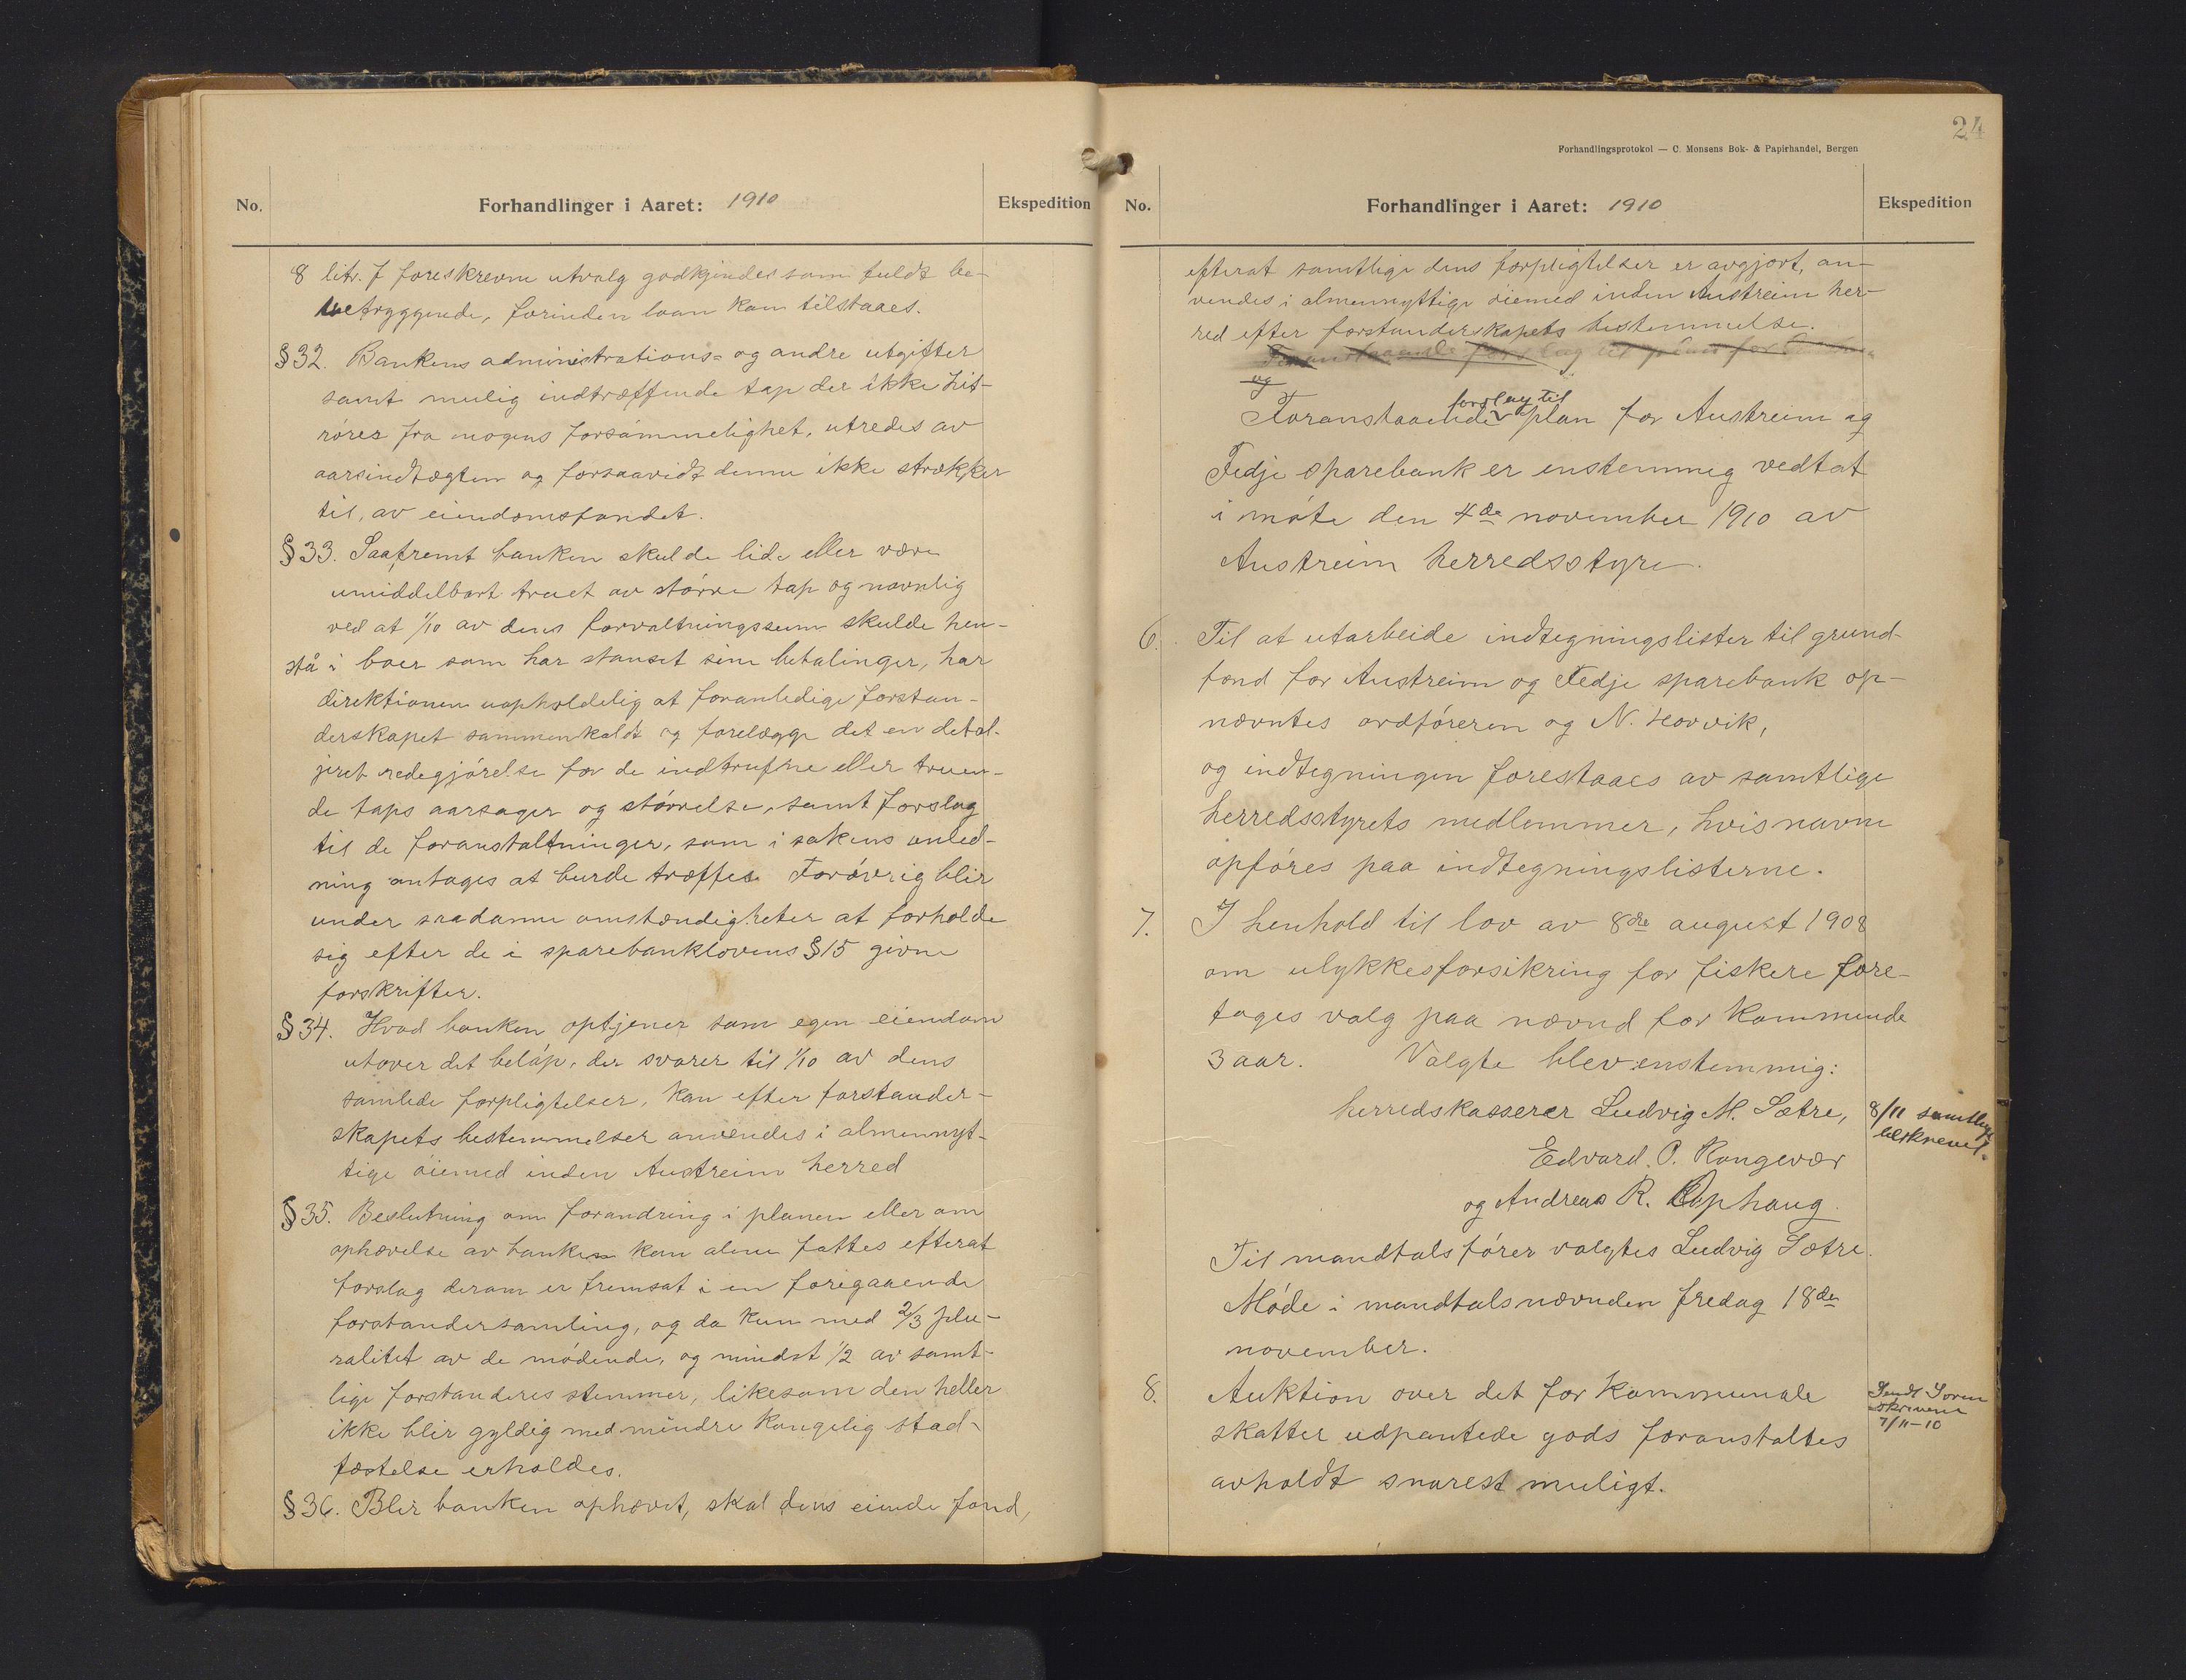 No.
Forhandlinger i Aaret: 1910
Ekspedition
8 litr. f foreskrevne utvalg godkjendes som fuldt be-
betryggende, forinden laan kan tilstaaes.
§ 32. Bankens administrations= og andre utgifter
samt mulig indtræffende tap der ikke hit-
rører fra nogens forsømmelighet, utredes av
aarsindtægten og forsaavidt denne ikke strækker
til, av eiendomsfondet.
§ 33. Saafremt banken skulde lide eller være
umiddelbart truet av større tap og navnlig
ved at 1/10 av dens forvaltningssum skulde hen-
stå i boer som har stanset sine betalinger, har
direktionen uopholdelig at foranledige forstan-
derskapet sammenkaldt og forelægge det en detal-
jert redegjørelse for de indtrufne eller truen-
de taps aarsager og størrelse, samt forslag
til de foranstaltninger, som i sakens anled-
ning antages at burde træffes. Forøvrig blir
under saadanne omstændigheter at forholde
sig efter de i sparebanklovens § 15 givne
forskrifter.
§ 34. Hvad banken optjener som egen eiendom
utover det beløp, der svarer til 1/10 av dens
samlede forpligtelser, kan efter forstander-
skapets bestemmelser anvendes i almennyt-
tige øiemed inden Austreim herred
§ 35. Beslutning om forandring i planen eller om
ophævelse av banken kan alene fattes efterat
forslag derom er fremsat i en foregaaende
forstandersamling, og da kun med 2/3 plu-
ralitet av de mødende, og mindst 1/2 av samt-
lige forstanderes stemmer, likesom den heller
ikke blir gyldig med mindre kongelig stad-
fæstelse erholdes.
§ 36. Blir banken ophævet, skal dens eiende fond,
24
Forhandlingsprotokol — C. Monsens Bok- & Papirhandel, Bergen
No.
Forhandlinger i Aaret: 1910
Ekspedition
efterat samtlige dens forpligtelser er avgjort, an-
vendes i almennyttige øiemed inden Austreim her-
red efter forstanderskapets bestemmelse.
Foranstaaende forslag til plan for
og
forslag til
Foranstaaende plan for Austreim og
Fedje sparebank er enstemmig vedtat
i møte den 4de november 1910 av
Austreim herredsstyre.
6. Til at utarbeide indtegningslister til grund-
fond for Austreim og Fedje sparebank op-
nævntes ordføreren og N. Hovvik,
og indtegningen forestaaes av samtlige
herredsstyrets medlemmer, hvis navne
opføres paa indtegningslisterne.
7. I henhold til lov av 8de august 1908
om ulykkesforsikring for fiskere fore-
tages valg paa nævnd for kommende
3 aar. Valgte blev enstemmig:
herredskasserer Ludvig M. Sætre,
8/11 samtlige
tilskrevet.
Edvard P. Rongevær
og Andreas R. Ophaug.
Til mandtalsfører valgtes Ludvig Sætre.
Møde i mandtalsnævnden fredag 18de
november.
8. Auktion over det for kommunale
skatter udpantede gods foranstaltes
avholdt snarest muligt.
Sendt Soren
skriveren
7/11-10